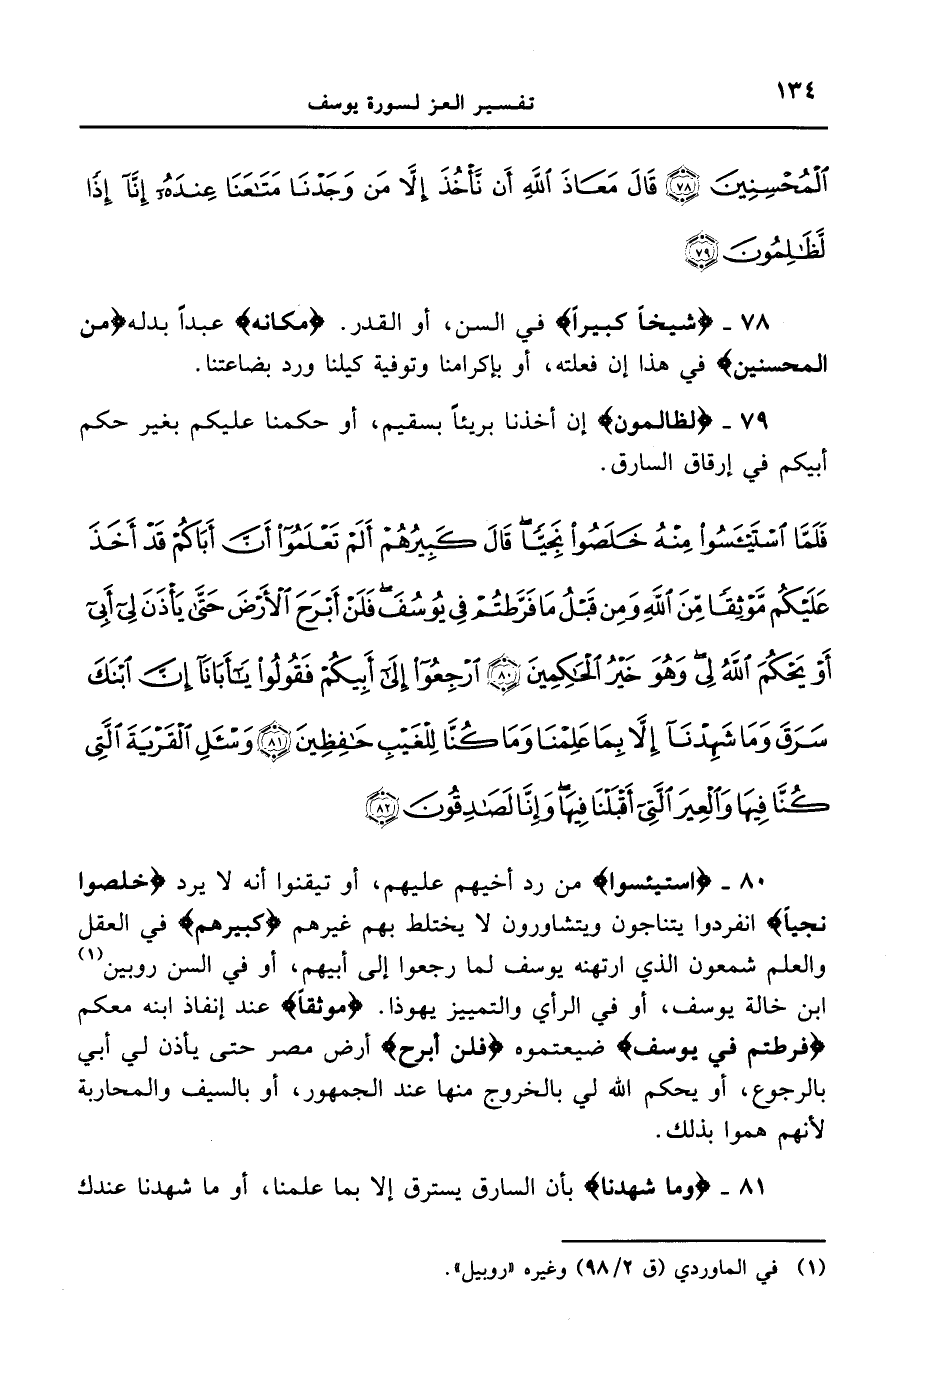 ١٣٤
تفسير العز لسورة يوسف
ٱلْمُحْسِنِينَ ﴿٧٨﴾ قَالَ مَعَاذَ ٱللَّهِ أَن نَّأْخُذَ إِلَّا مَن وَجَدْنَا مَتَٰعَنَا عِندَهُۥٓ إِنَّآ إِذًا
لَّظَٰلِمُونَ ﴿٧٩﴾
٧٨ ـ ﴿شيخاً كبيراً﴾ في السن، أو القدر. ﴿مكانه﴾ عبداً بدله ﴿من
المحسنين﴾ في هذا إن فعلته، أو بإكرامنا وتوفية كيلنا ورد بضاعتنا.
٧٩ ـ ﴿لظالمون﴾ إن أخذنا بريئاً بسقيم، أو حكمنا عليكم بغير حكم
أبيكم في إرقاق السارق.
فَلَمَّا ٱسْتَيْـَٔسُوا۟ مِنْهُ خَلَصُوا۟ نَجِيًّا ۖ قَالَ كَبِيرُهُمْ أَلَمْ تَعْلَمُوٓا۟ أَنَّ أَبَاكُمْ قَدْ أَخَذَ
عَلَيْكُم مَّوْثِقًا مِّنَ ٱللَّهِ وَمِن قَبْلُ مَا فَرَّطتُمْ فِى يُوسُفَ ۖ فَلَنْ أَبْرَحَ ٱلْأَرْضَ حَتَّىٰ يَأْذَنَ لِىٓ أَبِىٓ
أَوْ يَحْكُمَ ٱللَّهُ لِى ۖ وَهُوَ خَيْرُ ٱلْحَٰكِمِينَ ﴿٨٠﴾ ٱرْجِعُوٓا۟ إِلَىٰٓ أَبِيكُمْ فَقُولُوا۟ يَٰٓأَبَانَآ إِنَّ ٱبْنَكَ
سَرَقَ وَمَا شَهِدْنَآ إِلَّا بِمَا عَلِمْنَا وَمَا كُنَّا لِلْغَيْبِ حَٰفِظِينَ ﴿٨١﴾ وَسْـَٔلِ ٱلْقَرْيَةَ ٱلَّتِى
كُنَّا فِيهَا وَٱلْعِيرَ ٱلَّتِىٓ أَقْبَلْنَا فِيهَا ۖ وَإِنَّا لَصَٰدِقُونَ ﴿٨٢﴾
٨٠ ـ ﴿استيئسوا﴾ من رد أخيهم عليهم، أو تيقنوا أنه لا يرد ﴿خلصوا
نجياً﴾ انفردوا يتناجون ويتشاورون لا يختلط بهم غيرهم ﴿كبيرهم﴾ في العقل
والعلم شمعون الذي ارتهنه يوسف لما رجعوا إلى أبيهم، أو في السن روبين(١)
ابن خالة يوسف، أو في الرأي والتمييز يهوذا. ﴿موثقاً﴾ عند إنفاذ ابنه معكم
﴿فرطتم في يوسف﴾ ضيعتموه ﴿فلن أبرح﴾ أرض مصر حتى يأذن لي أبي
بالرجوع، أو يحكم الله لي بالخروج منها عند الجمهور، أو بالسيف والمحاربة
لأنهم هموا بذلك.
٨١ ـ ﴿وما شهدنا﴾ بأن السارق يسترق إلا بما علمنا، أو ما شهدنا عندك
(١) في الماوردي (ق ٩٨/٢) وغيره «روبيل».